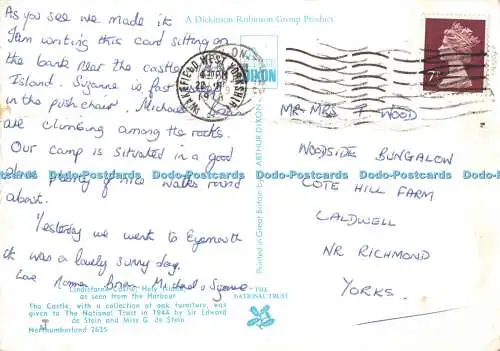 A Dickinson Robinson Group Product.
As you see we made it.
I am writing this card sitting on
the bank near the castle
Island. Suzanne is fast
in the push chair. Michael
are climbing among the rocks.
Our camp is situated in a good
place plenty of nice walks round
about.
Yesterday we went to Eyemouth
it was a lovely sunny day.
Love Brian Michael & Suzanne
WAKEFIELD WEST YORKSHIRE
DIXON
7
MR MRS F WOOD
WOODSIDE BUNGALOW
COTE HILL FARM
CALDWELL
NR RICHMOND
YORKS.
Printed in Great Britain by ARTHUR DIXON
Lindisfarne Castle, Holy Island
as seen from the Harbour
The Castle, with a collection of oak furniture, was
given to The National Trust in 1944 by Sir Edward
de Stein and Miss G de Stein
Northumberland 2635
THE
NATIONAL TRUST
Dodo-Postcards Dodo-Postcards Dodo-Postcards Dodo-Postcards Dodo-Postcards